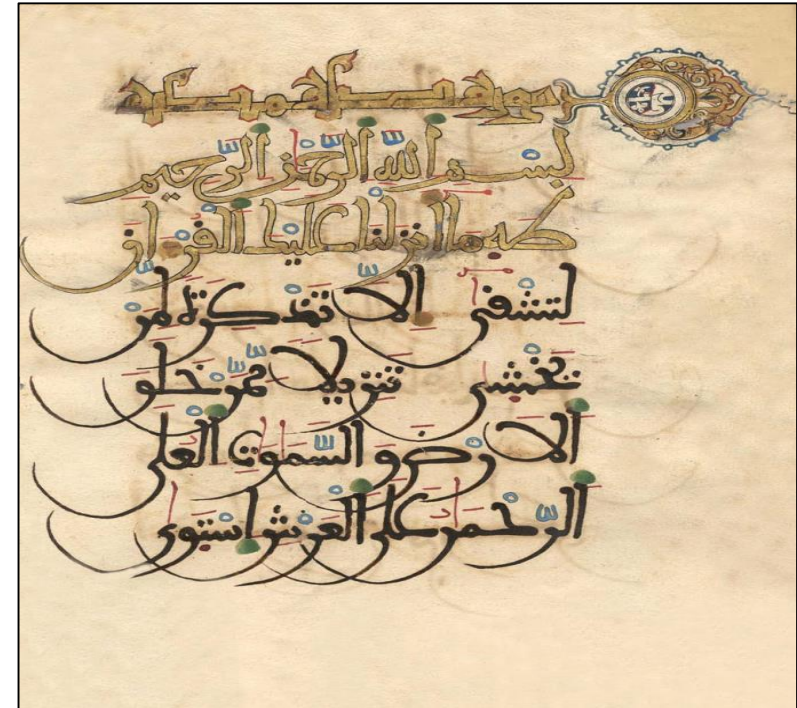 بسم الله الرحمن الرحيم
طه ما انزلنا عليك القران
لتشقى الا تذكرة لمن
يخشى تنزيلا ممن خلق
الارض و السموت العلى
الرحمن على العرش استوى